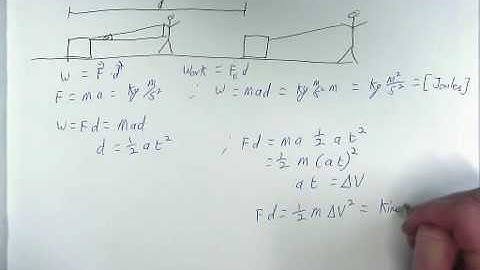 d
W = F⃗ · d⃗ Work = F∥ d
F = ma = kg m/s² ∴ W = mad = kg m/s² m = kg m²/s² = [Joules]
W = Fd = mad
d = ½ at² ∴ Fd = ma ½ at²
= ½ m (at)²
at = ΔV
Fd = ½ m ΔV² = Kine